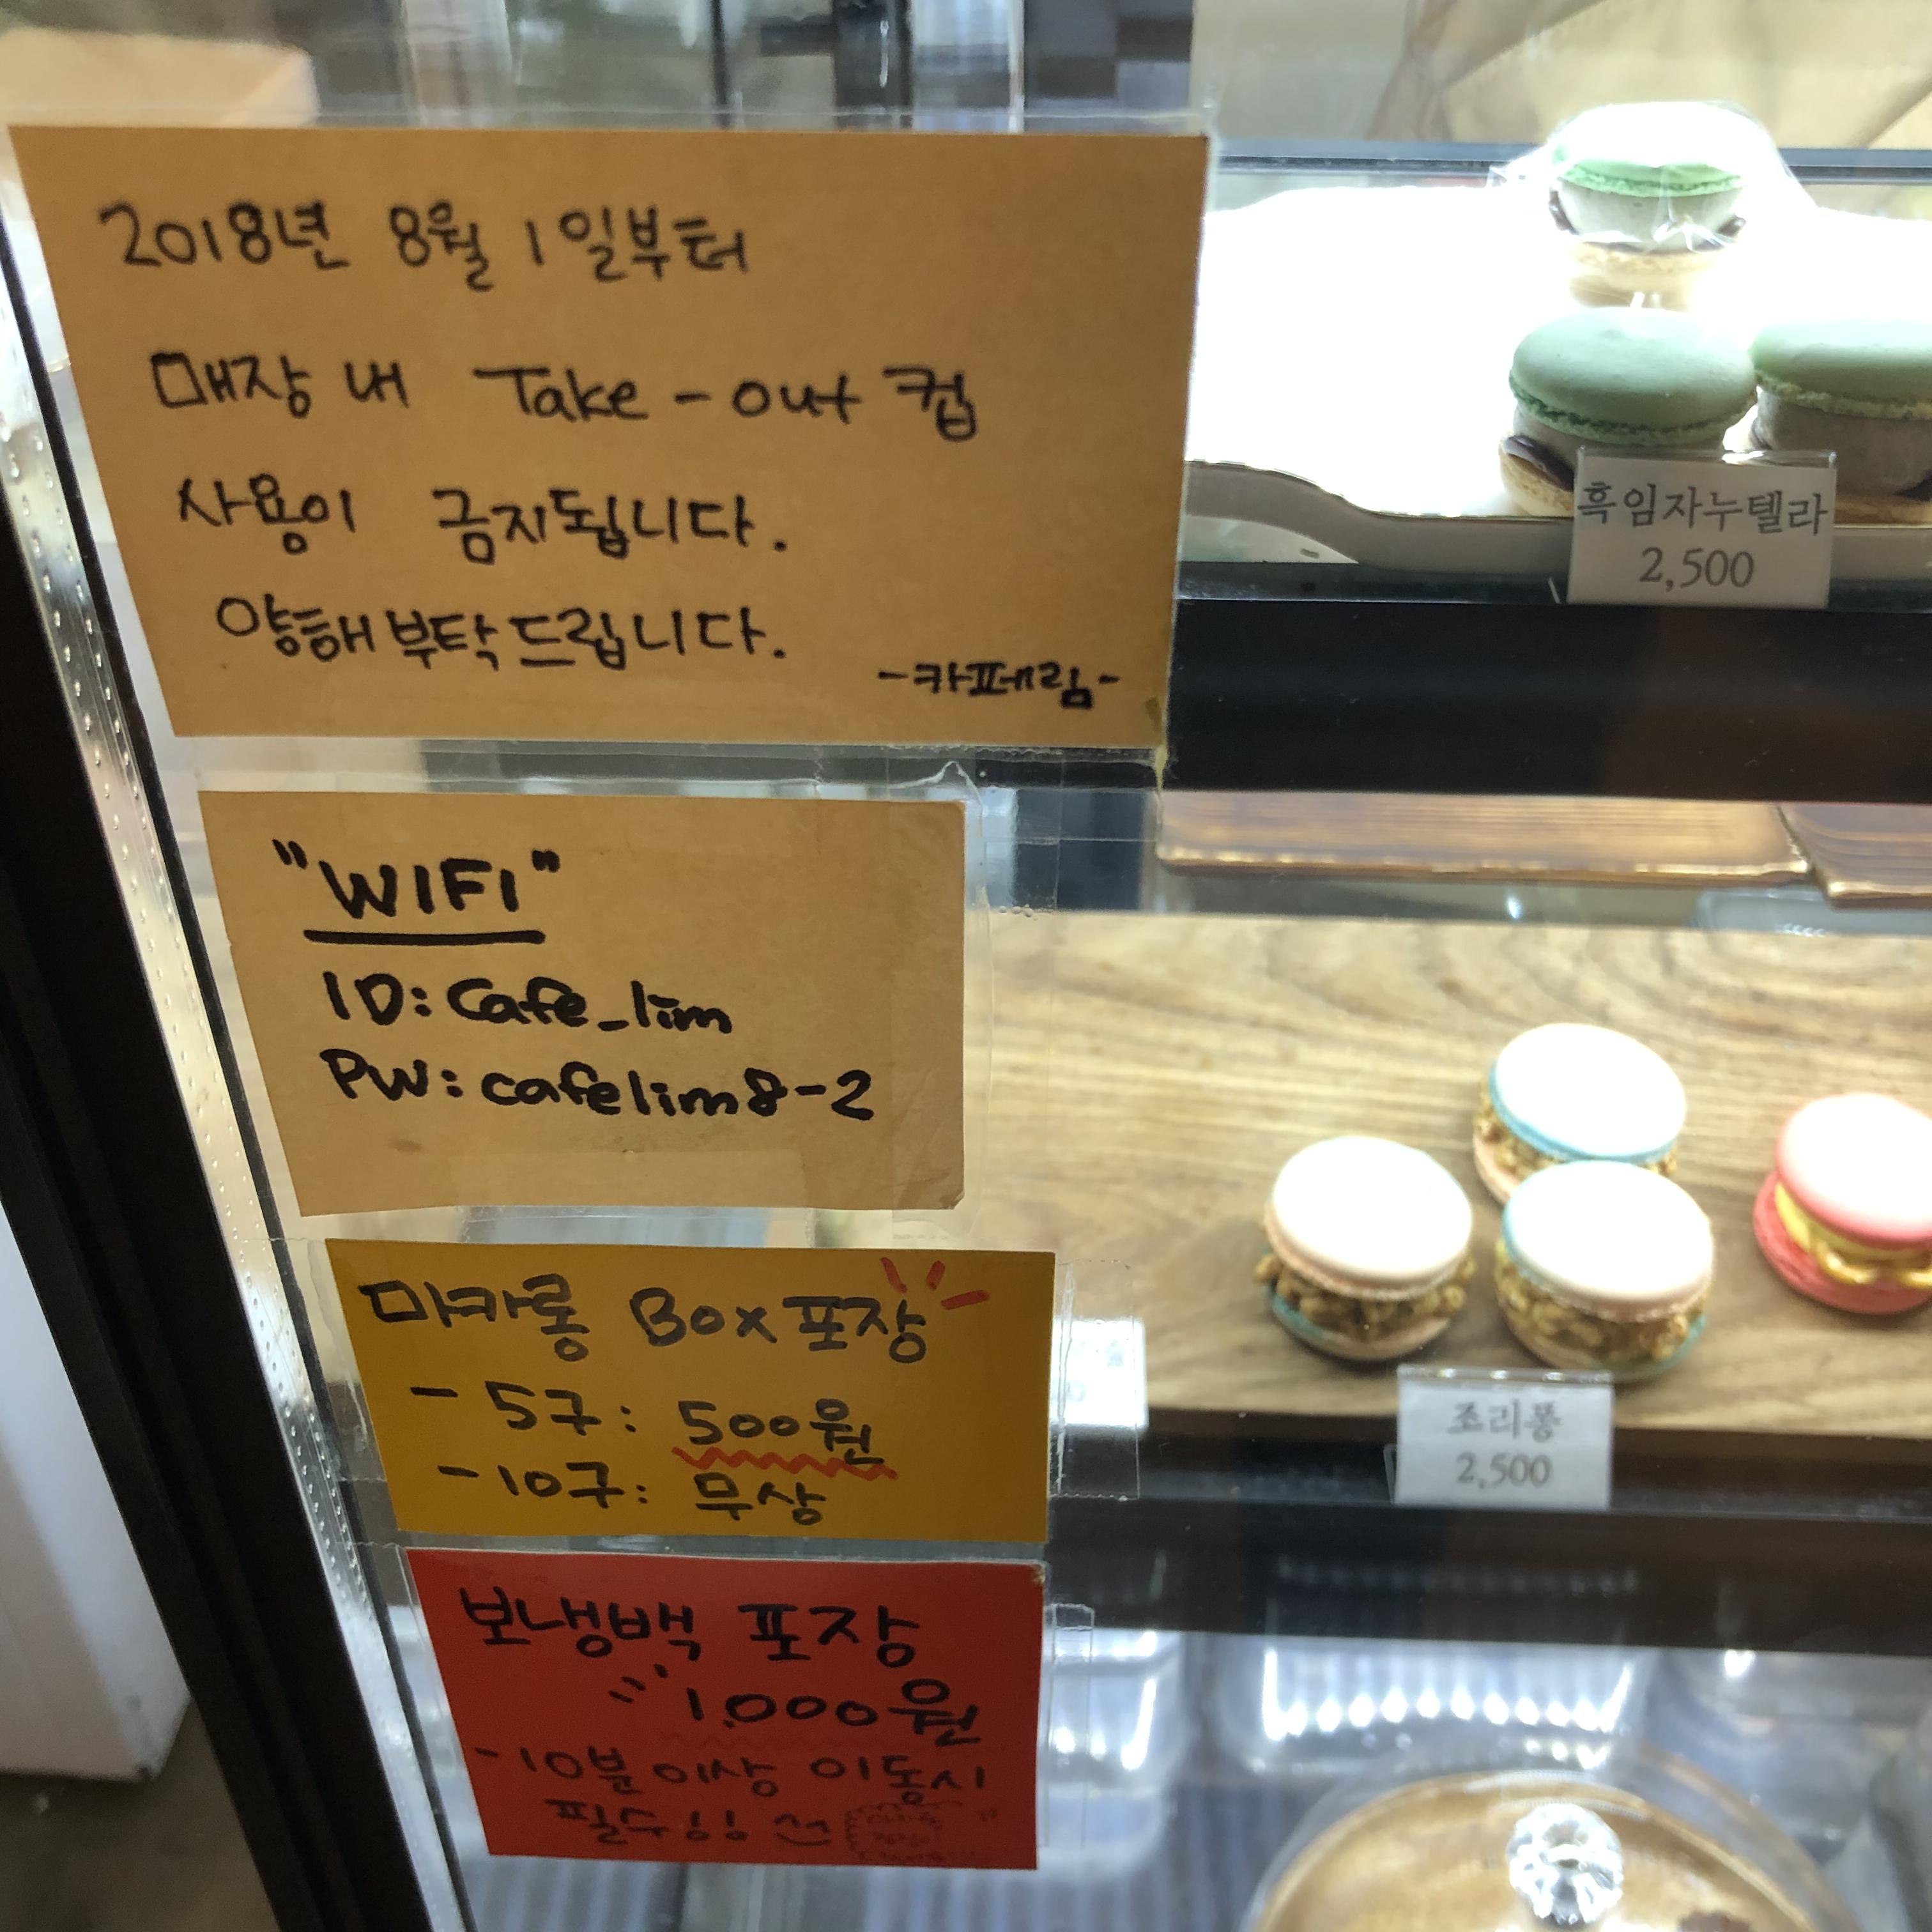 2018년 8월 1일부터
매장 내 Take-out 컵
사용이 금지됩니다.
양해부탁드립니다.
-카페림-
"WIFI"
ID: Cafe_lim
PW: cafelim8-2
마카롱 Box 포장
- 5구: 500원
- 10구: 무상
보냉백 포장
1,000원
- 10분 이상 이동시
필수!!
흑임자누텔라
2,500
조리퐁
2,500